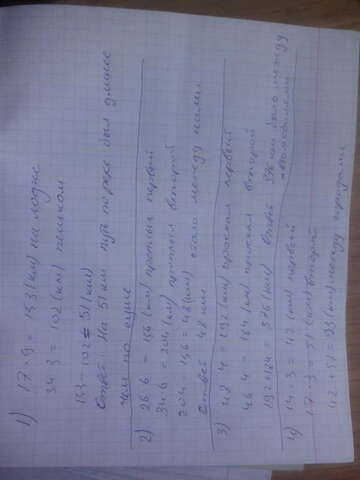 1) 17·9 = 153 (км) на лодке
34·3 = 102 (км) пешком
153 - 102 = 51 (км)
Ответ: На 51 км путь по реке был длиннее
чем по суше
2) 26·6 = 156 (км) проплыл первый
34·6 = 204 (км) проплыл второй
204 - 156 = 48 (км) стало между ними
Ответ 48 км
3) 48·4 = 192 (км) проехал первый
46·4 = 184 (км) проехал второй
192+184 376 (км) Ответ 376 км было между
автомобилями
4) 14·3 = 42 (км) первый
17·3 = 51 (км) второй
42 + 51 = 93 (км) между